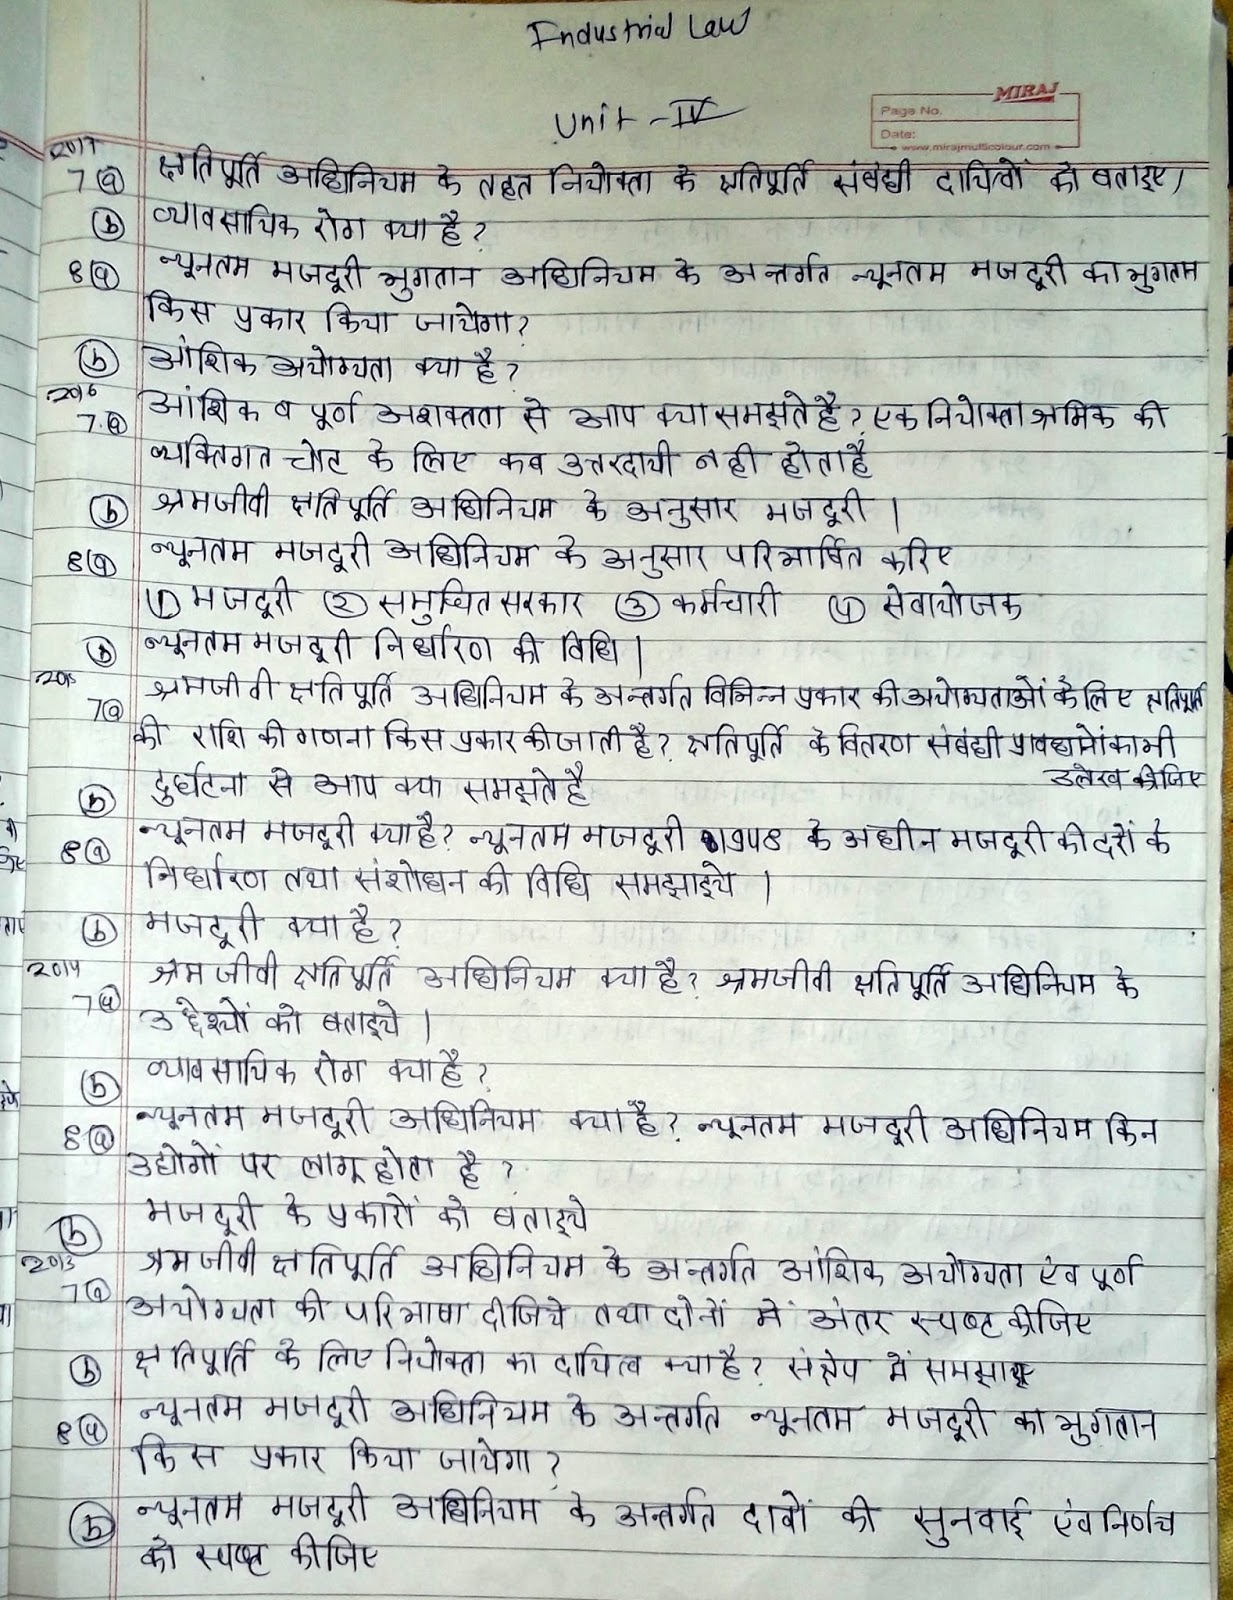 Industrial Law
MIRAJ
Page No.
Date:
www.mirajmulticolour.com
Unit - IV
2017
7 (a) क्षतिपूर्ति अधिनियम के तहत नियोक्ता के क्षतिपूर्ति संबंधी दायित्वों को बताइए।
(b) व्यावसायिक रोग क्या है?
8 (a) न्यूनतम मजदूरी भुगतान अधिनियम के अन्तर्गत न्यूनतम मजदूरी का भुगतान
किस प्रकार किया जायेगा?
(b) आंशिक अयोग्यता क्या है?
2016
7. (a) आंशिक व पूर्ण अशक्तता से आप क्या समझते है? एक नियोक्ता श्रमिक की
व्यक्तिगत चोट के लिए कब उत्तरदायी नही होता है
(b) श्रमजीवी क्षतिपूर्ति अधिनियम के अनुसार मजदूरी।
8 (a) न्यूनतम मजदूरी अधिनियम के अनुसार परिभाषित करिए
(1) मजदूरी (2) समुचित सरकार (3) कर्मचारी (4) सेवायोजक
(b) न्यूनतम मजदूरी निर्धारण की विधि।
7 (a) श्रमजीवी क्षतिपूर्ति अधिनियम के अन्तर्गत विभिन्न प्रकार की अयोग्यताओं के लिए क्षतिपूर्ति
की राशि की गणना किस प्रकार की जाती है? क्षतिपूर्ति के वितरण संबंधी प्रावधानों का भी
उल्लेख कीजिए
(b) दुर्घटना से आप क्या समझते है
8 (a) न्यूनतम मजदूरी क्या है? न्यूनतम मजदूरी 1948 के अधीन मजदूरी की दरों के
निर्धारण तथा संशोधन की विधि समझाइये।
(b) मजदूरी क्या है?
2014
7 (a) श्रमजीवी क्षतिपूर्ति अधिनियम क्या है? श्रमजीवी क्षतिपूर्ति अधिनियम के
उद्देश्यों को बताइये।
(b) व्यावसायिक रोग क्या है?
8 (a) न्यूनतम मजदूरी अधिनियम क्या है? न्यूनतम मजदूरी अधिनियम किन
उद्योगों पर लागू होता है?
(b) मजदूरी के प्रकारों को बताइये
2013
7 (a) श्रमजीवी क्षतिपूर्ति अधिनियम के अन्तर्गत आंशिक अयोग्यता एंव पूर्ण
अयोग्यता की परिभाषा दीजिये तथा दोनों में अंतर स्पष्ट कीजिए
(b) क्षतिपूर्ति के लिए नियोक्ता का दायित्व क्या है? संक्षेप में
8 (a) न्यूनतम मजदूरी अधिनियम के अन्तर्गत न्यूनतम मजदूरी का भुगतान
किस प्रकार किया जायेगा?
(b) न्यूनतम मजदूरी अधिनियम के अन्तर्गत दावों की सुनवाई एंव निर्णय
को स्पष्ट कीजिए